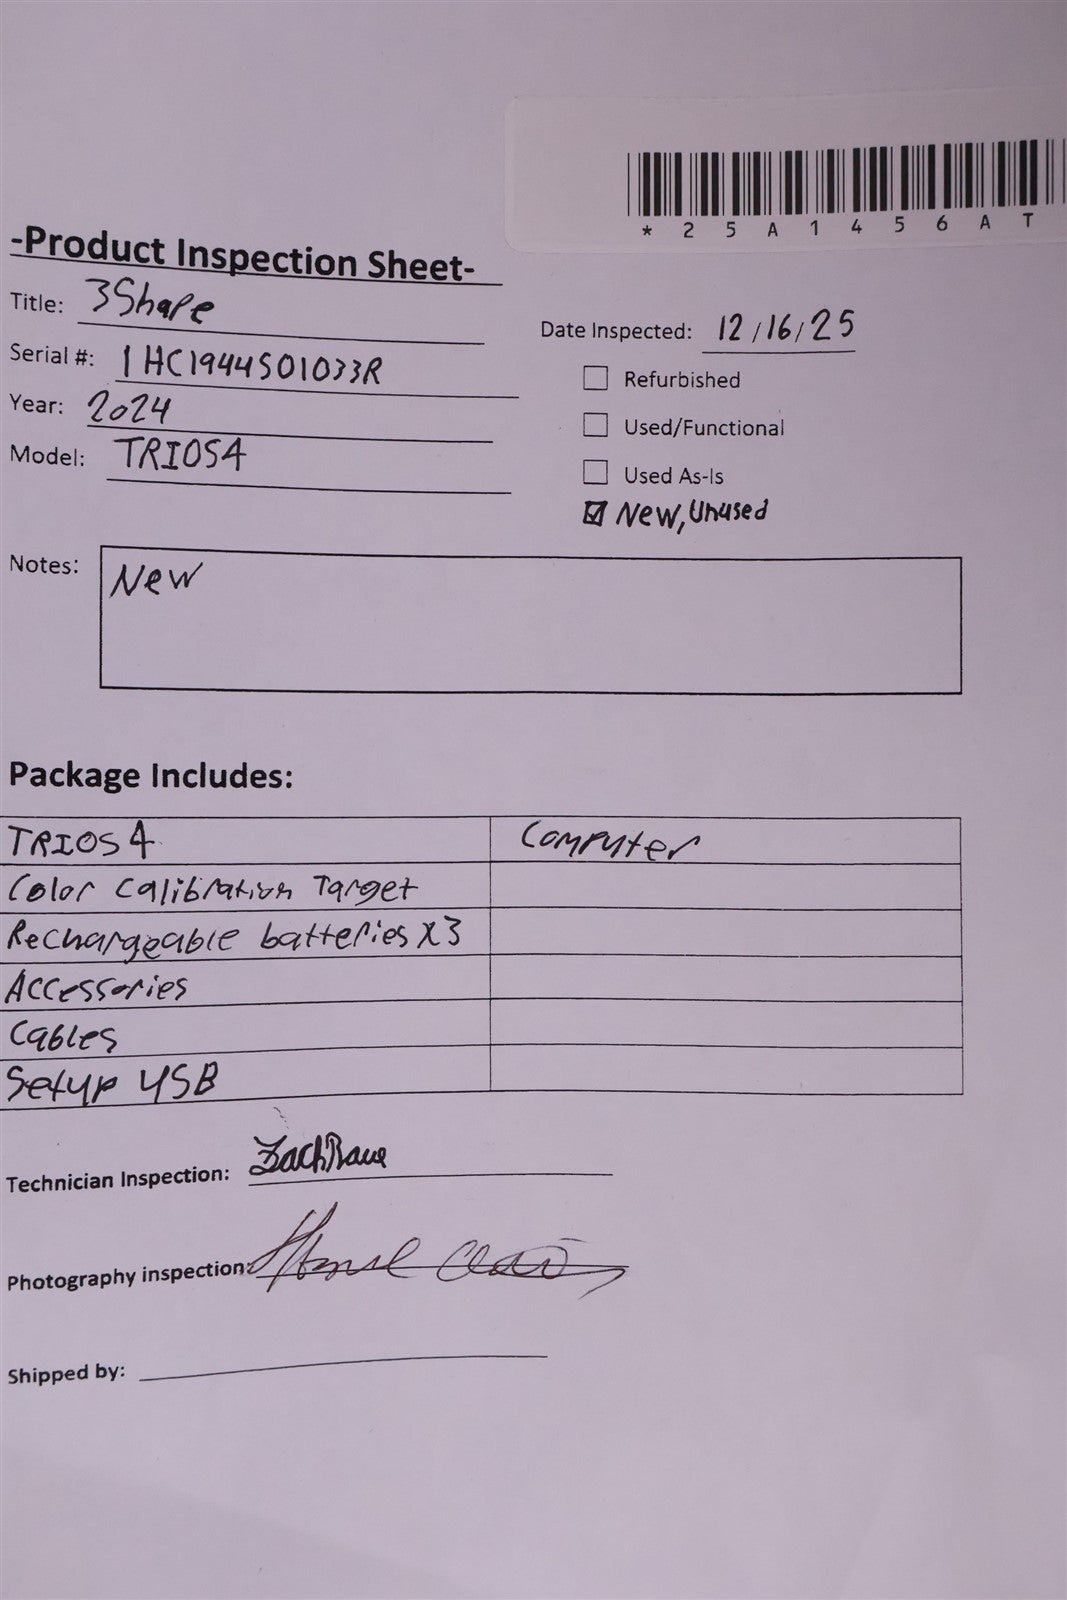 * 2 5 A 1 4 5 6 A T
-Product Inspection Sheet-
Title: 3Shape
Serial #: 1HC1944S01033R
Year: 2024
Model: TRIOS4
Date Inspected: 12/16/25
Refurbished
Used/Functional
Used As-Is
New, Unused
Notes: New
Package Includes:
TRIOS 4 Computer
Color Calibration Target
Rechargeable batteries x3
Accessories
Cables
Setup USB
Technician Inspection: Zach
Photography inspection:
Shipped by: